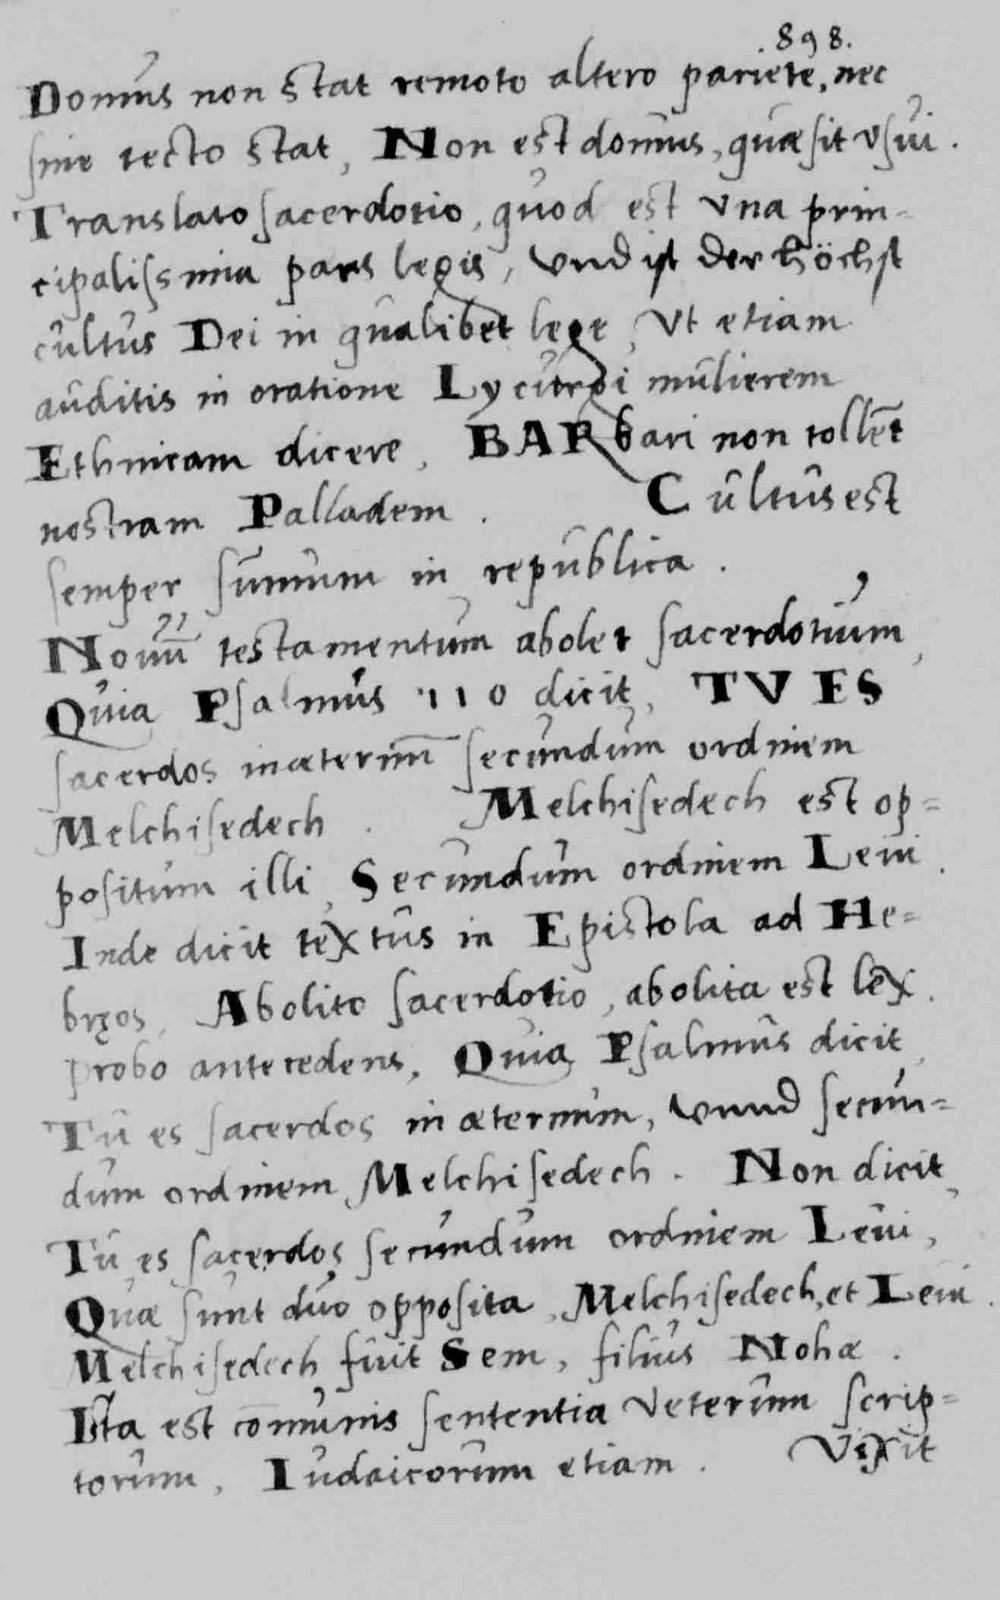 .898.
Domus non stat remoto altero pariete, nec
sine tecto stat, Non est domus, quæ sit vsui.
Translato sacerdotio, quod est vna prin-
cipalissima pars legis, vnd ist der höchst
cultus Dei in qualibet lege, Vt etiam
auditis in oratione Lycurgi mulierem
Ethnicam dicere, BARbari non tollēt
nostram Palladem. Cultus est
semper sum̄um in republica.
Nouū testamentum abolet sacerdotium,
Quia Psalmus 110 dicit, TV ES
sacerdos in æternū secundum ordinem
Melchisedech. Melchisedech est op=
positum illi, Secundum ordinem Leui.
Inde dicit textus in Epistola ad He=
bręos, Abolito sacerdotio, abolita est lex.
probo antecedens, Quia Psalmus dicit,
Tu es sacerdos in æternum, vnnd secun=
dum ordinem Melchisedech. Non dicit,
Tu es sacerdos secundum ordinem Leui,
Quæ sunt duo opposita, Melchisedech, et Leui.
Melchisedech fuit Sem, filius Nohæ.
Ista est com̄unis sententia veterum scrip=
torum, Iudaicorum etiam. Vixit